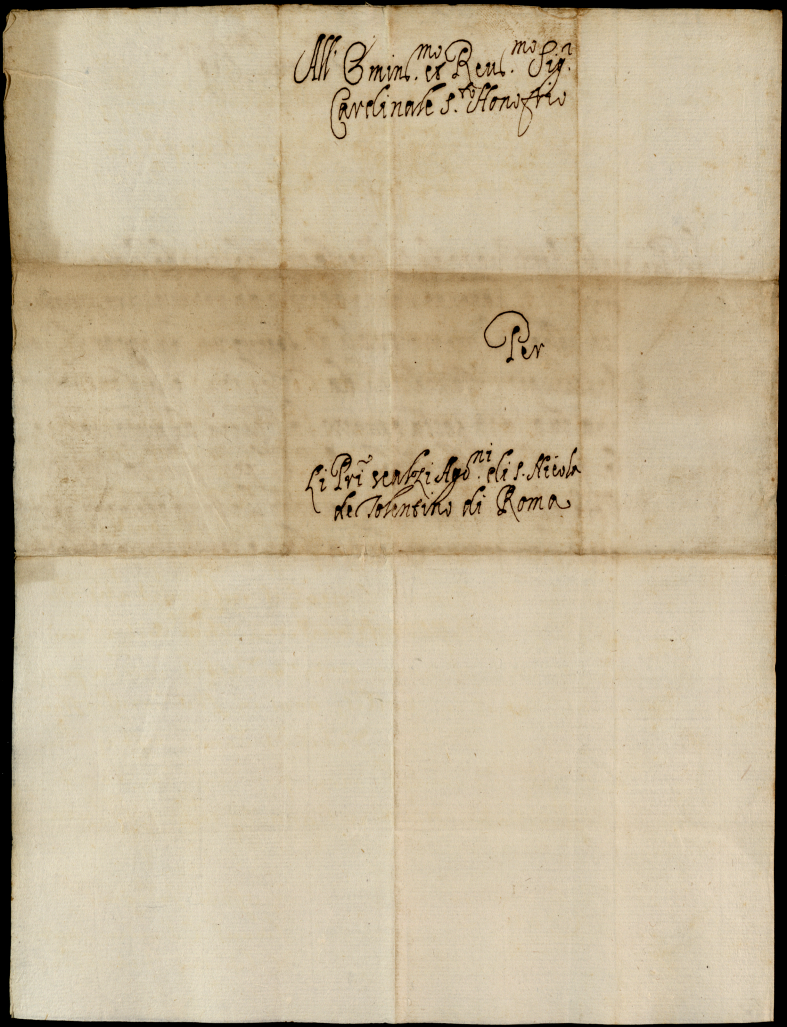 All' Emin.mo et Reu.mo Sig.r
Cardinale S.to Honofrio
Per
Li Pri scalzi Ago.ni di S. Nicola
de Tolentino di Roma